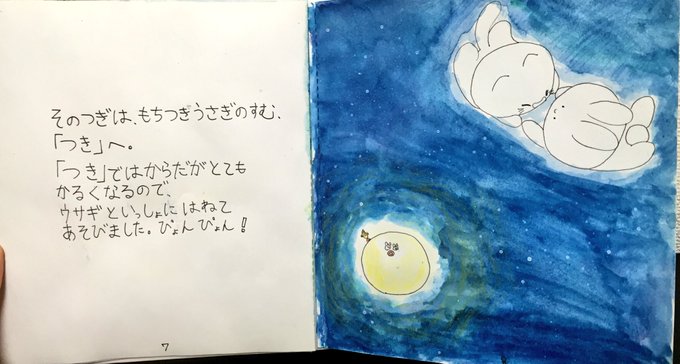 そのつぎは、もちつきうさぎのすむ、
「つき」へ。
「つき」ではからだがとても
かるくなるので、
ウサギといっしょに はねて
あそびました。ぴょん ぴょん!
7